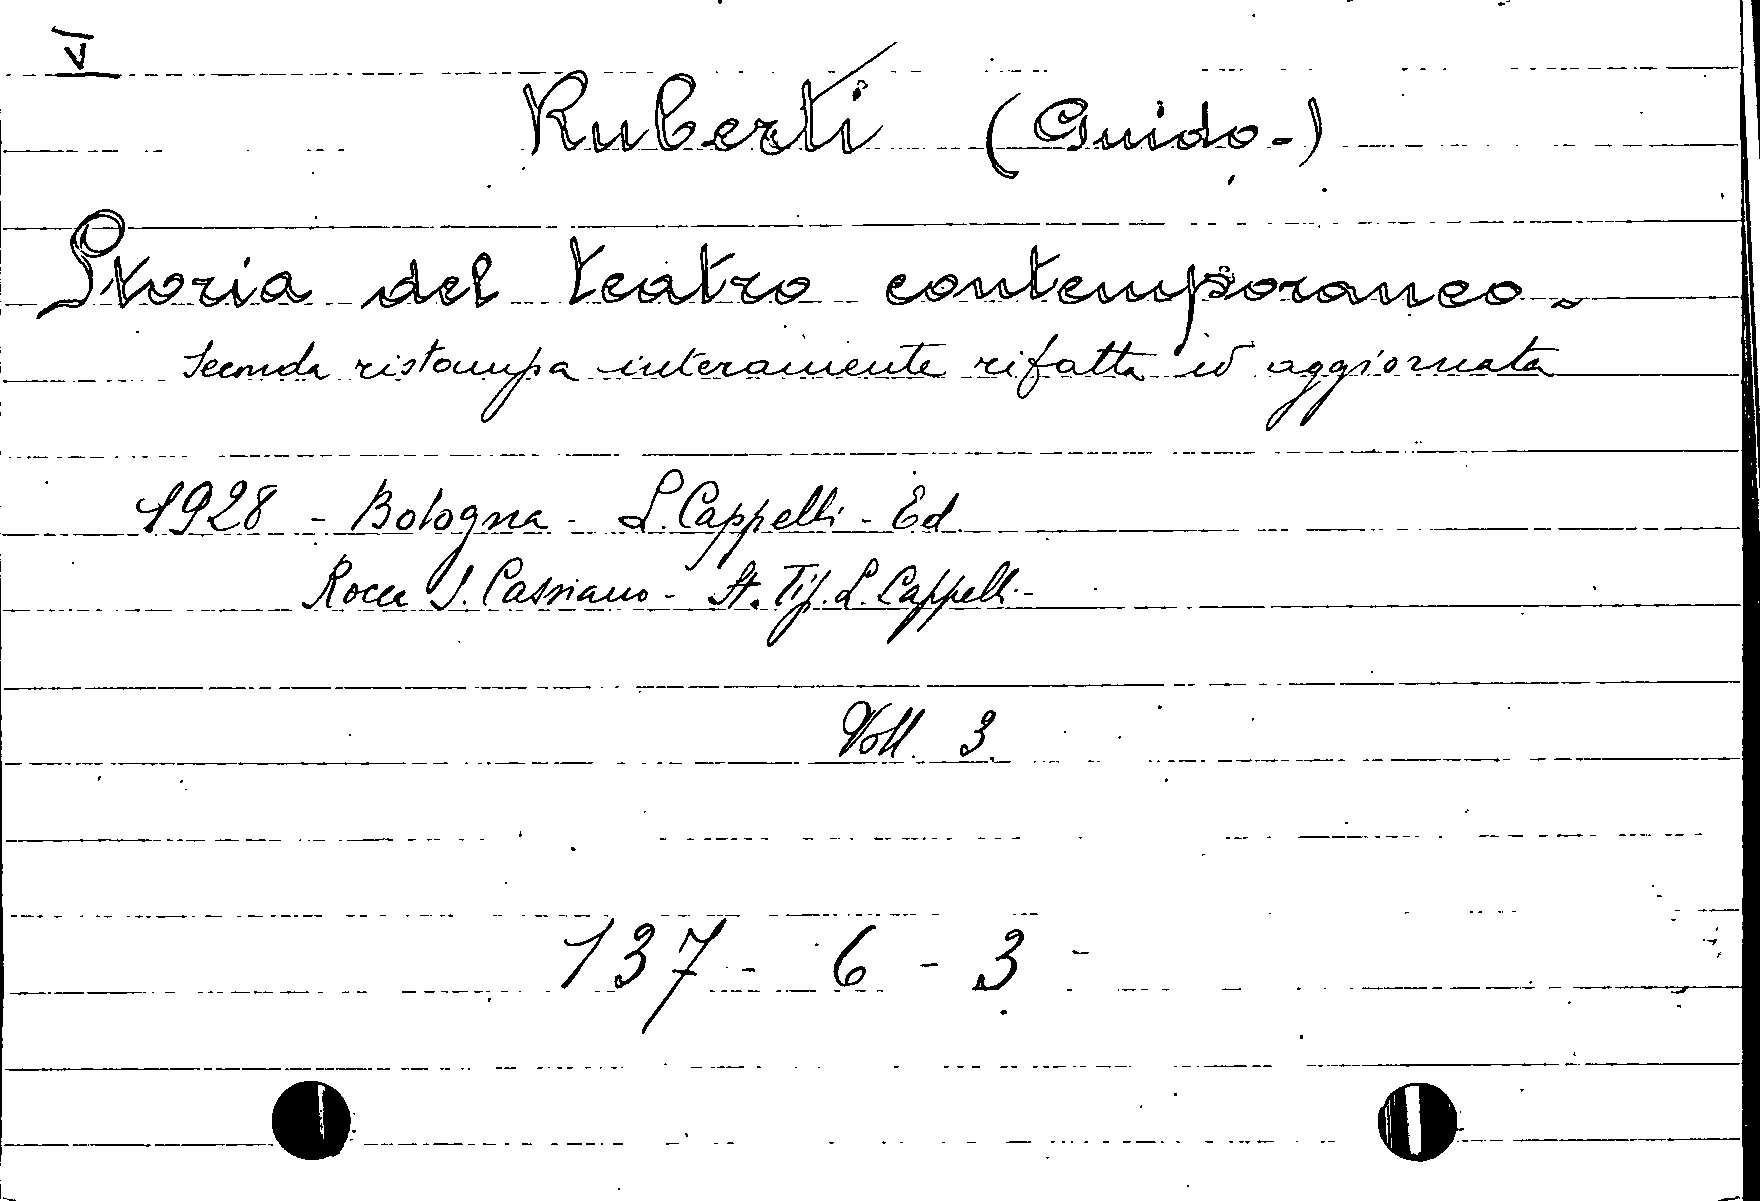 V
Ruberti (Guido-)
Storia del teatro contemporaneo-
Seconda ristampa interamente rifatta ed aggiornata
1928 - Bologna - L. Cappelli - Ed
Rocca S. Cassiano - St. Tip. L. Cappelli -
Voll. 3.
137 - 6 - 3 -